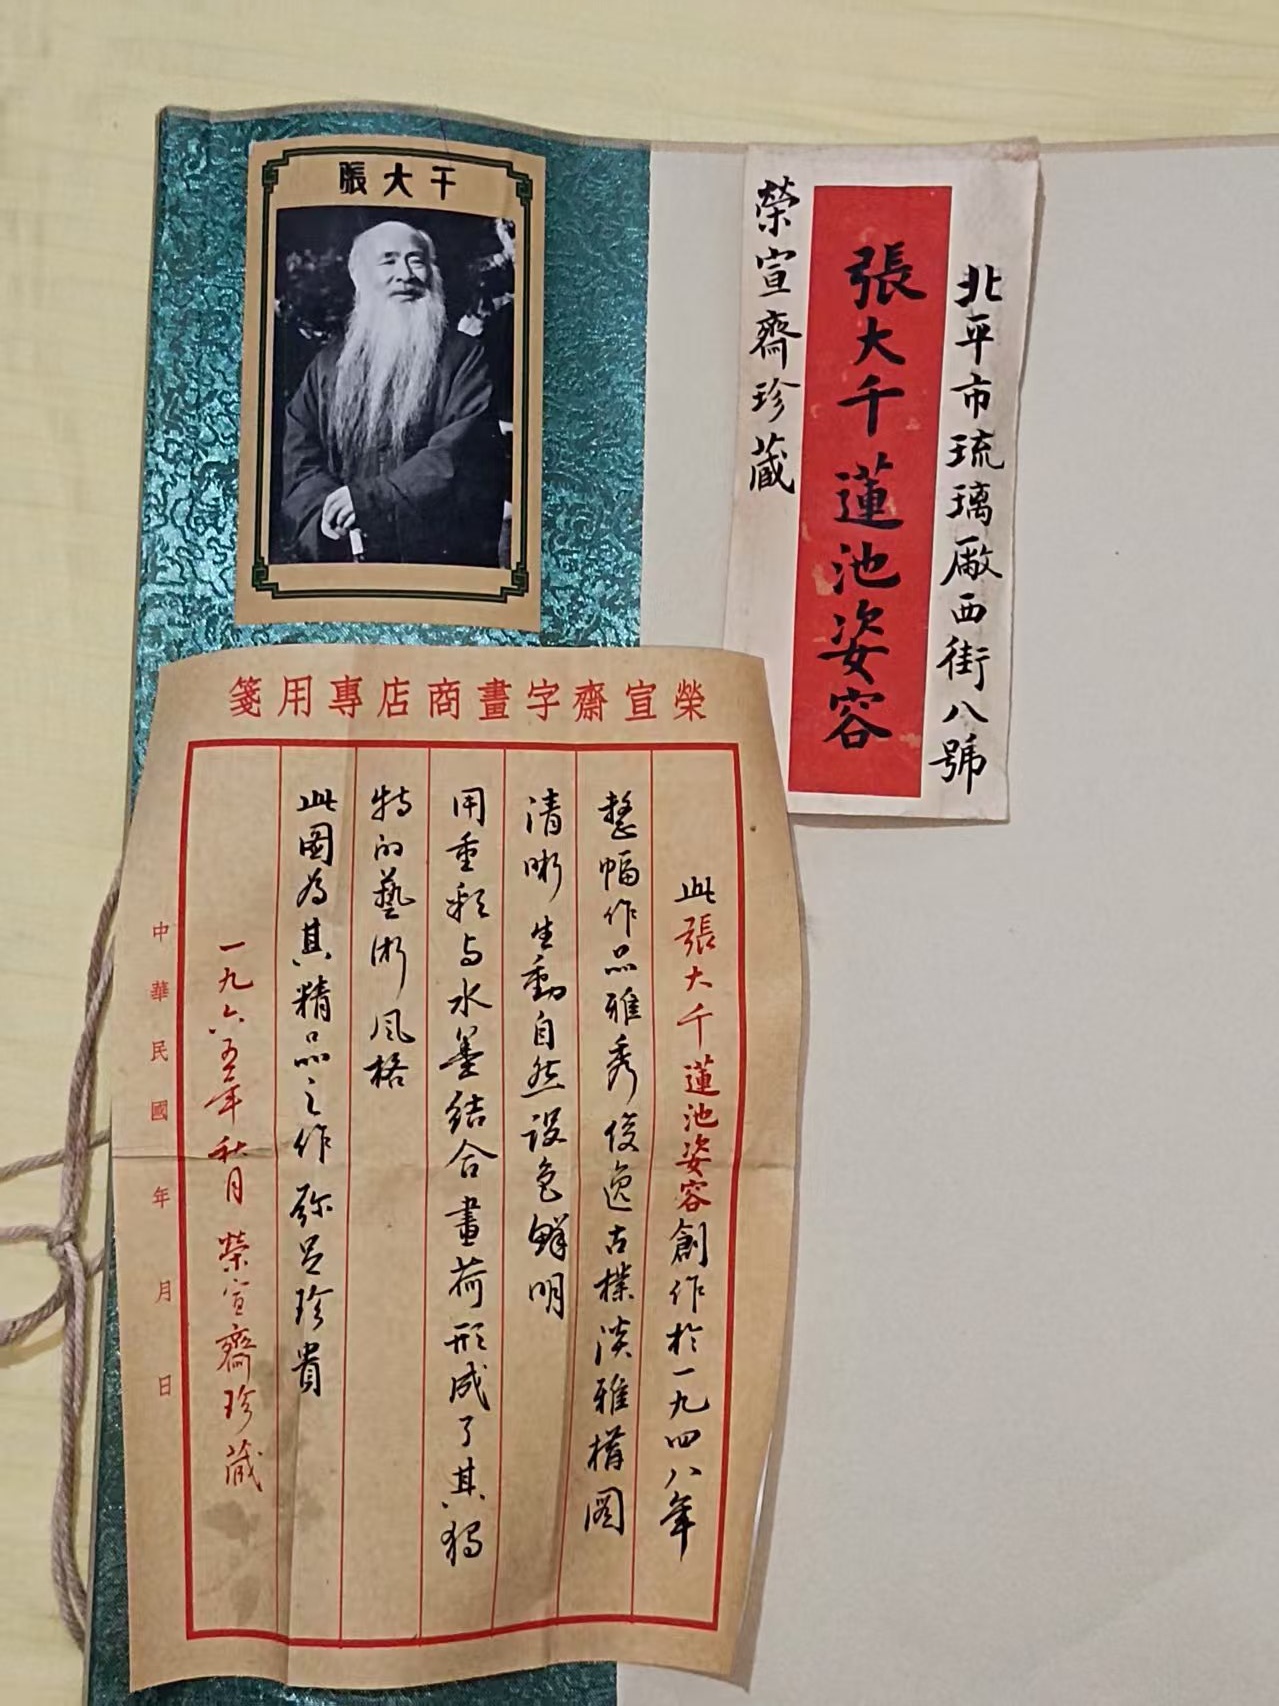 張大千
北平市琉璃廠西街八號
張大千蓮池姿容
榮宣齋珍藏
榮宣齋字畫商店專用箋
此張大千蓮池姿容創作於一九四八年
整幅作品雅秀俊逸古樸淡雅構图
清晰生動自然设色鲜明
用重彩与水墨结合畫荷形成了其独
特的藝術风格
此图为其精品之作弥足珍貴
一九六五年秋月榮宣齋珍藏
中華民國年月日